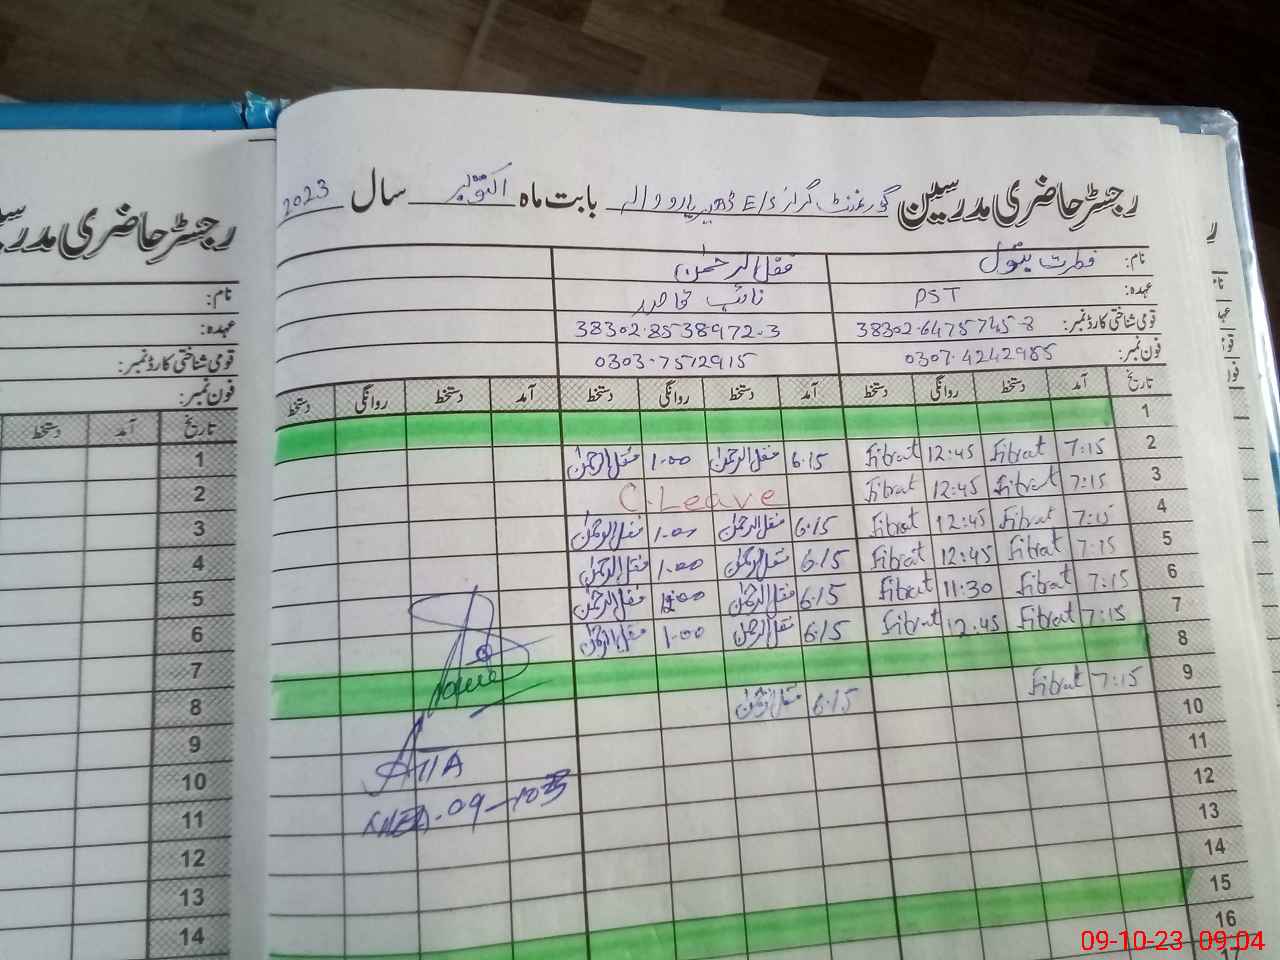 رجسٹر حاضری مدرسین گورنمنٹ گرلز E/S بابت ماہ اکتوبر سال 2023
نام: فطرت بتول فضل الرحمٰن
عہدہ: PST نائب قاصد
قومی شناختی کارڈ نمبر: 38302-6475745-8 38302-8538972-3
فون نمبر: 0307-4242985 0303-7572915
تاریخ آمد دستخط روانگی دستخط آمد دستخط روانگی دستخط آمد دستخط روانگی دستخط
1
2 7:15 Fibrat 12:45 Fibrat 6:15 فضل الرحمٰن 1:00 فضل الرحمٰن
3 7:15 Fibrat 12:45 Fibrat C.Leave
4 7:15 Fibrat 12:45 Fibrat 6:15 فضل الرحمٰن 1:00 فضل الرحمٰن
5 7:15 Fibrat 12:45 Fibrat 6:15 فضل الرحمٰن 1:00 فضل الرحمٰن
6 7:15 Fibrat 11:30 Fibrat 6:15 فضل الرحمٰن 12:00 فضل الرحمٰن
7 7:15 Fibrat 12:45 Fibrat 6:15 فضل الرحمٰن 1:00 فضل الرحمٰن
8
9 7:15 Fibrat 6:15 فضل الرحمٰن
10
11
12
13
14
15
16
17
ATIA
رجسٹر حاضری
نام:
عہدہ:
قومی شناختی کارڈ نمبر:
فون نمبر:
تاریخ آمد دستخط
1
2
3
4
5
6
7
8
9
10
11
12
13
14
09-10-23 09:04